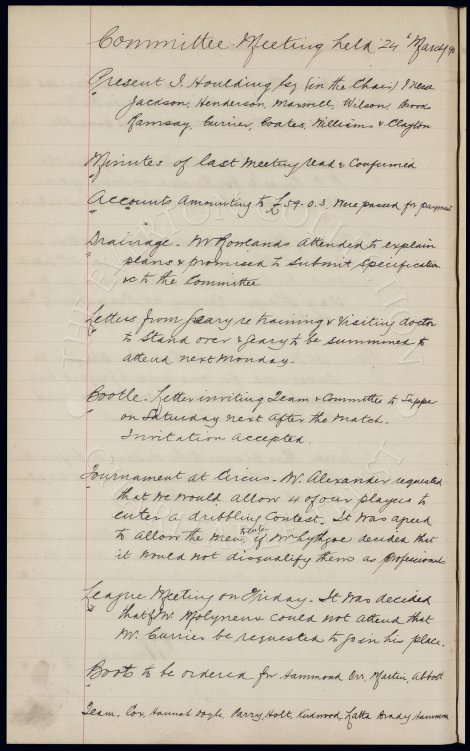 Committee Meeting held 24th March/90
Present J. Houlding Esq (in the Chair) Messrs
Jackson, Henderson, Maxwell, Wilson, Brooks
Ramsay, Currier, Coates, Williams & Clayton
Minutes of last Meeting read & Confirmed
Accounts Amounting to £59-0.3 Were passed for payment
Drainage - Mr Rowlands attended to explain
plans & promised to Submit Specification
&c to the Committee
Letters from Geary re training & Visiting doctor
to Stand over & Geary to be summoned to
attend next Monday -
Bootle - Letter inviting Team & Committee to Supper
on Saturday next after the match -
Invitation accepted
Tournament at Circus - Mr. Alexander requested
that we would allow 4 of our players to
enter a dribbling Contest. It was agreed
to allow the Men to do so, if Mr Lythgoe decided that
it would not disqualify them as professionals
League Meeting on Friday - It was decided
that if W. Molyneux could not attend that
Mr. Currier be requested to go in his place.
Boots to be ordered for Hammond Orr, Martin, Abbott
Team - Cox, Hannah Doyle, Parry, Holt, Kirkwood, Latta Brady Hammond
THE EVERTON COLLECTION